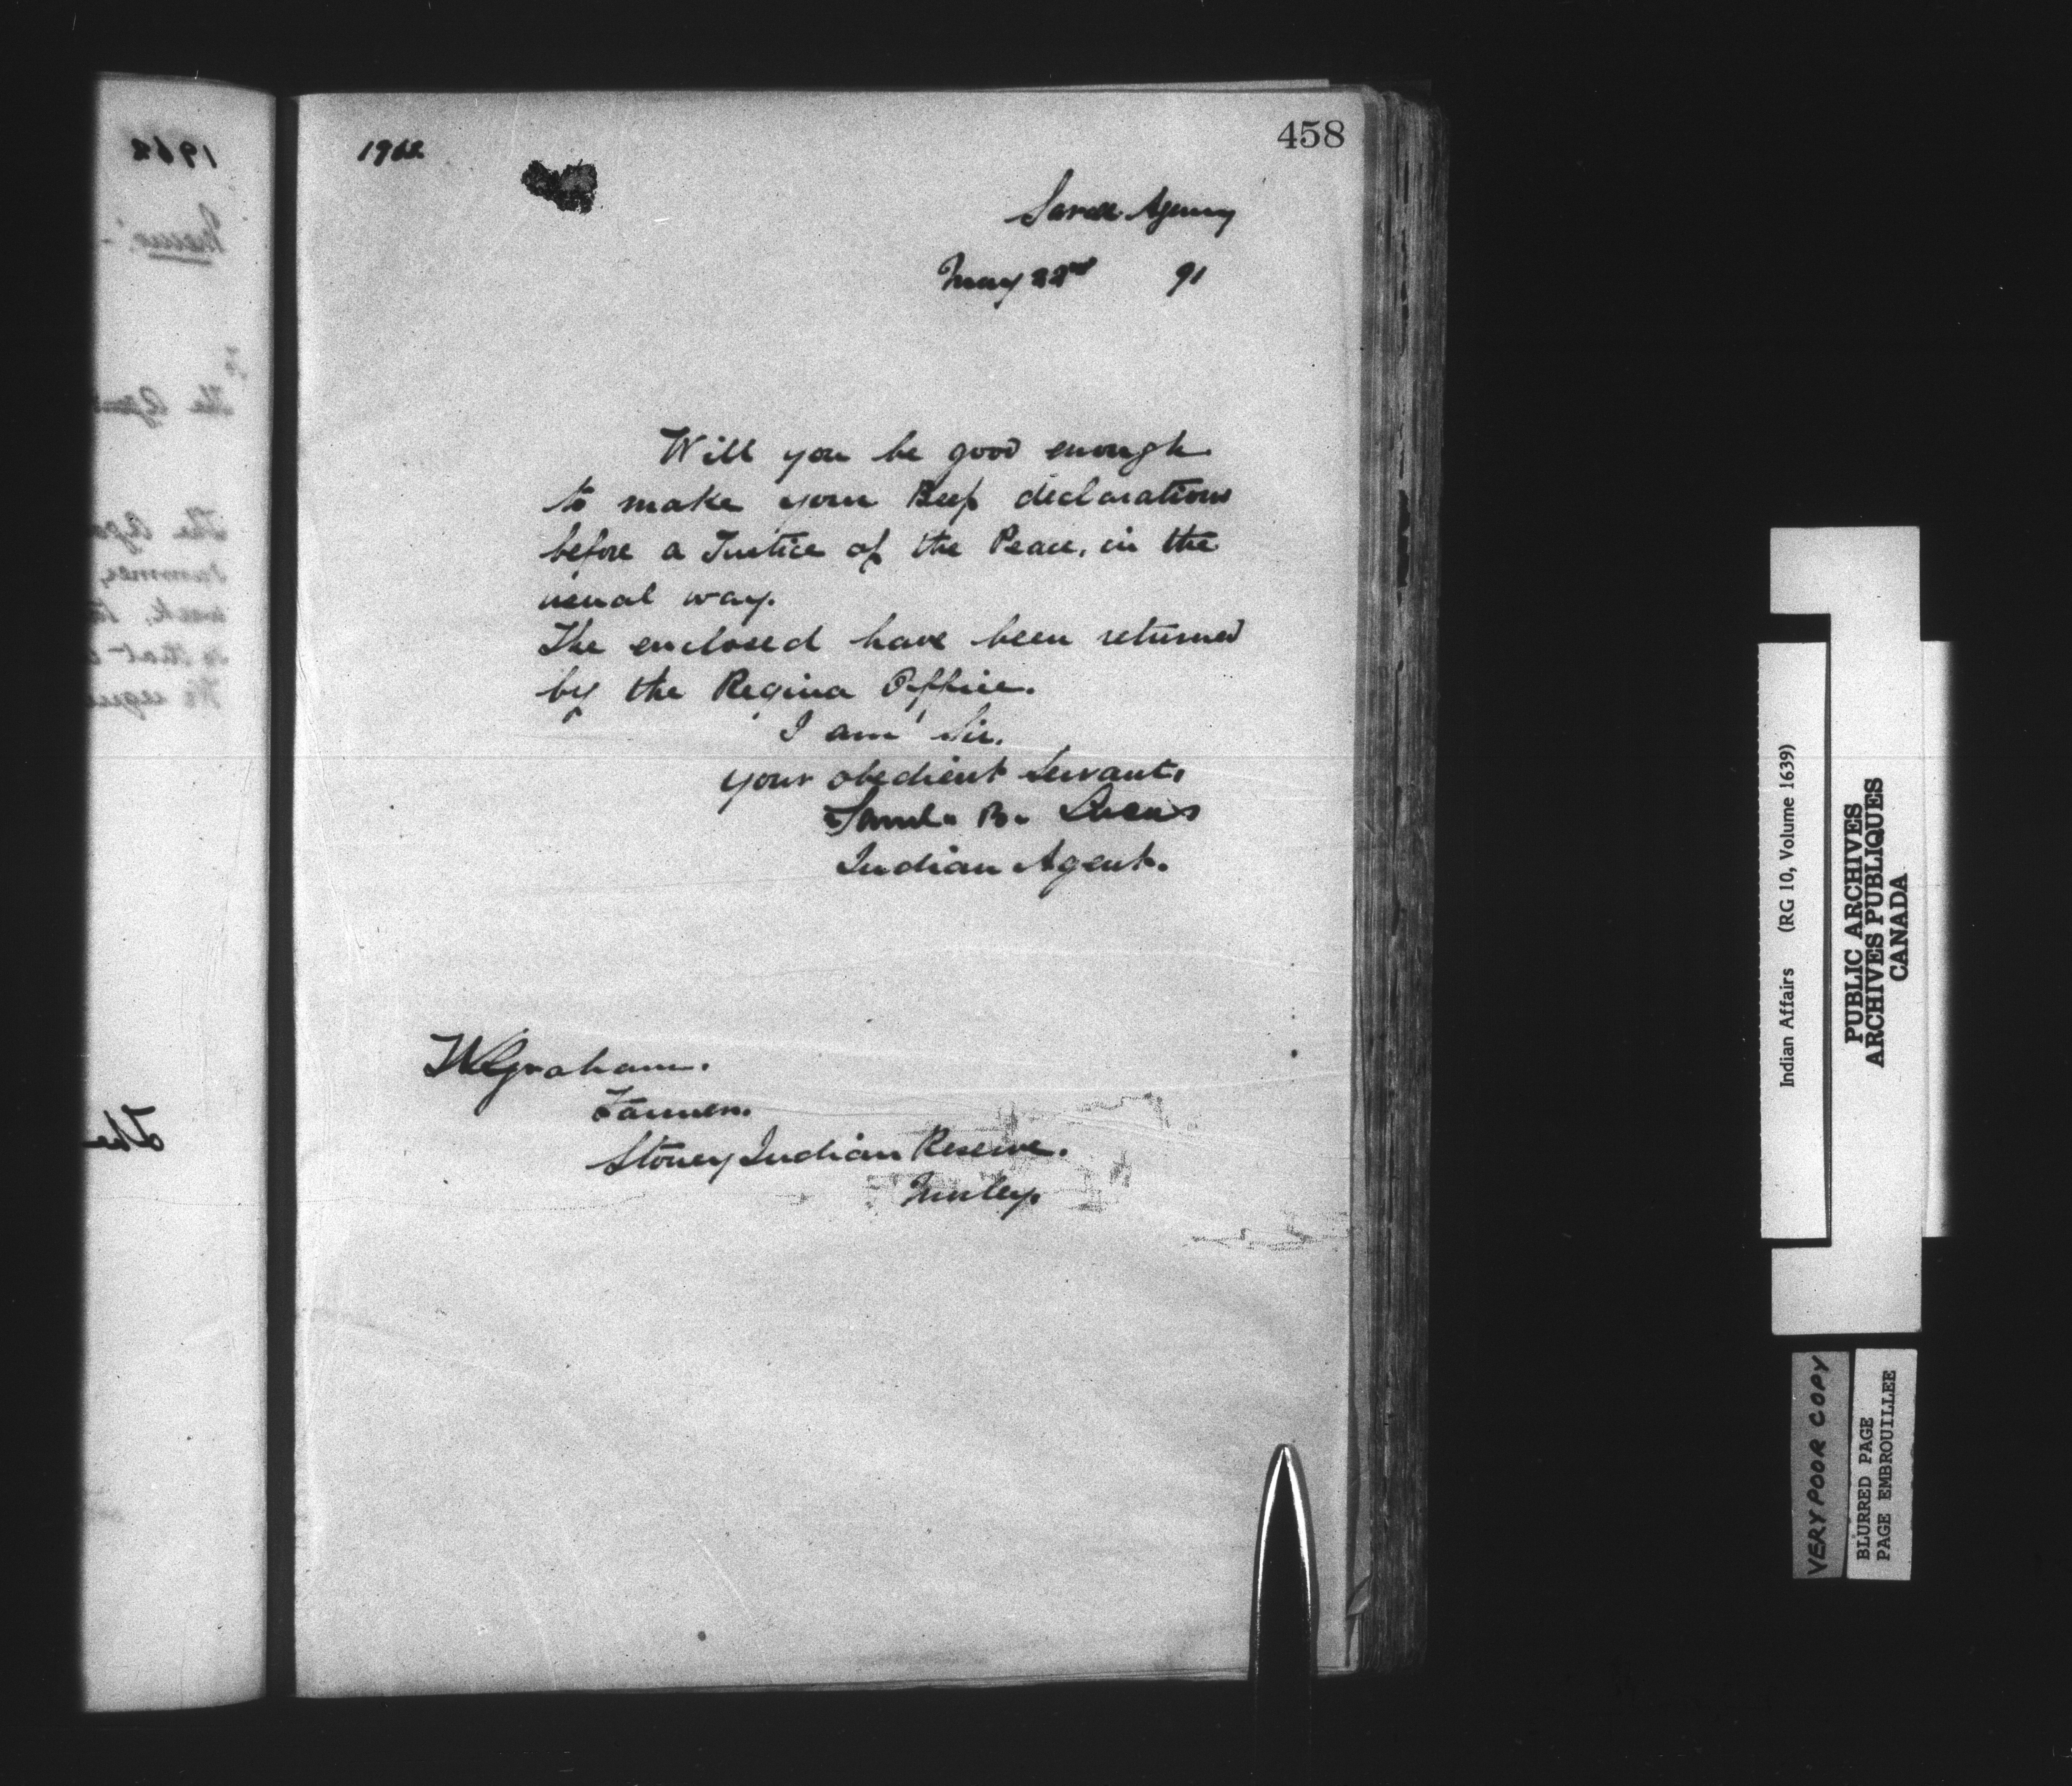 1962
458
Sarcee Agency
May 22nd 91
Will you be good enough
to make your Beef declarations
before a Justice of the Peace, in the
usual way.
The enclosed have been returned
by the Regina Office.
I am Sir,
your obedient Servant,
Saml. B. Lucas
Indian Agent.
Graham.
Farmer.
Stoney Indian Reserve.
Morley.
1962
Memo:-
The Agent
The
Indian Affairs (RG 10, Volume 1639)
PUBLIC ARCHIVES
ARCHIVES PUBLIQUES
CANADA
VERY POOR COPY
BLURRED PAGE
PAGE EMBROUILLEE